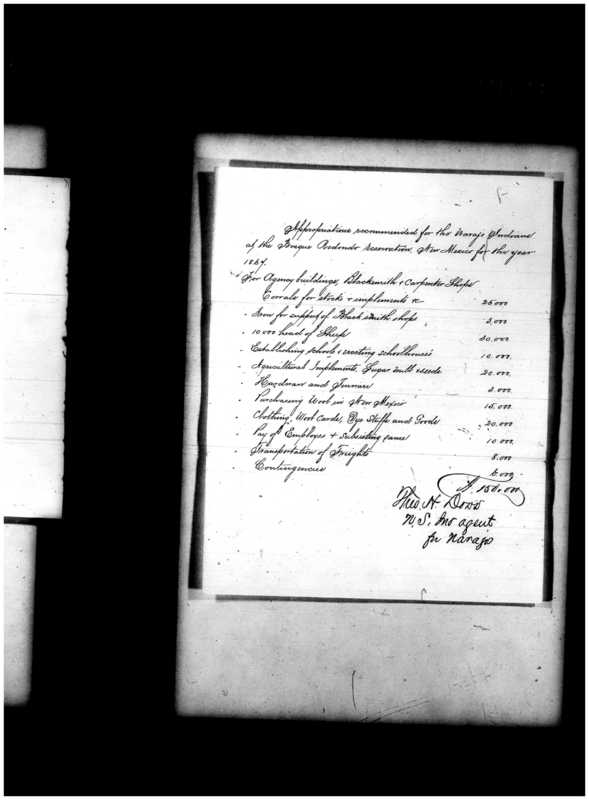 Appropriations recommended for the Navajo Indians
of the Bosque Redondo reservation, New Mexico for the year
1867.
For Agency buildings, Blacksmith & Carpenter Shops
Corrals for stock & implements &c 25,000
" Iron for support of Blacksmith shops
" 10000 head of Sheep 30,000
" Establishing schools & erecting schoolhouses 10,000
" Agricultural Implements, Sugar mill & seeds 20,000
" Hardware and
" Purchasing Wool in New Mexico 15,000
" Clothing, Wool Cards, Dye Stuffs and Goods 20,000
" Pay of Employes & subsisting same 10,000
" Transportation of Freights
" Contingencies
$150,000
Theo. H. Dodd
U.S. Ind agent
for Navajo